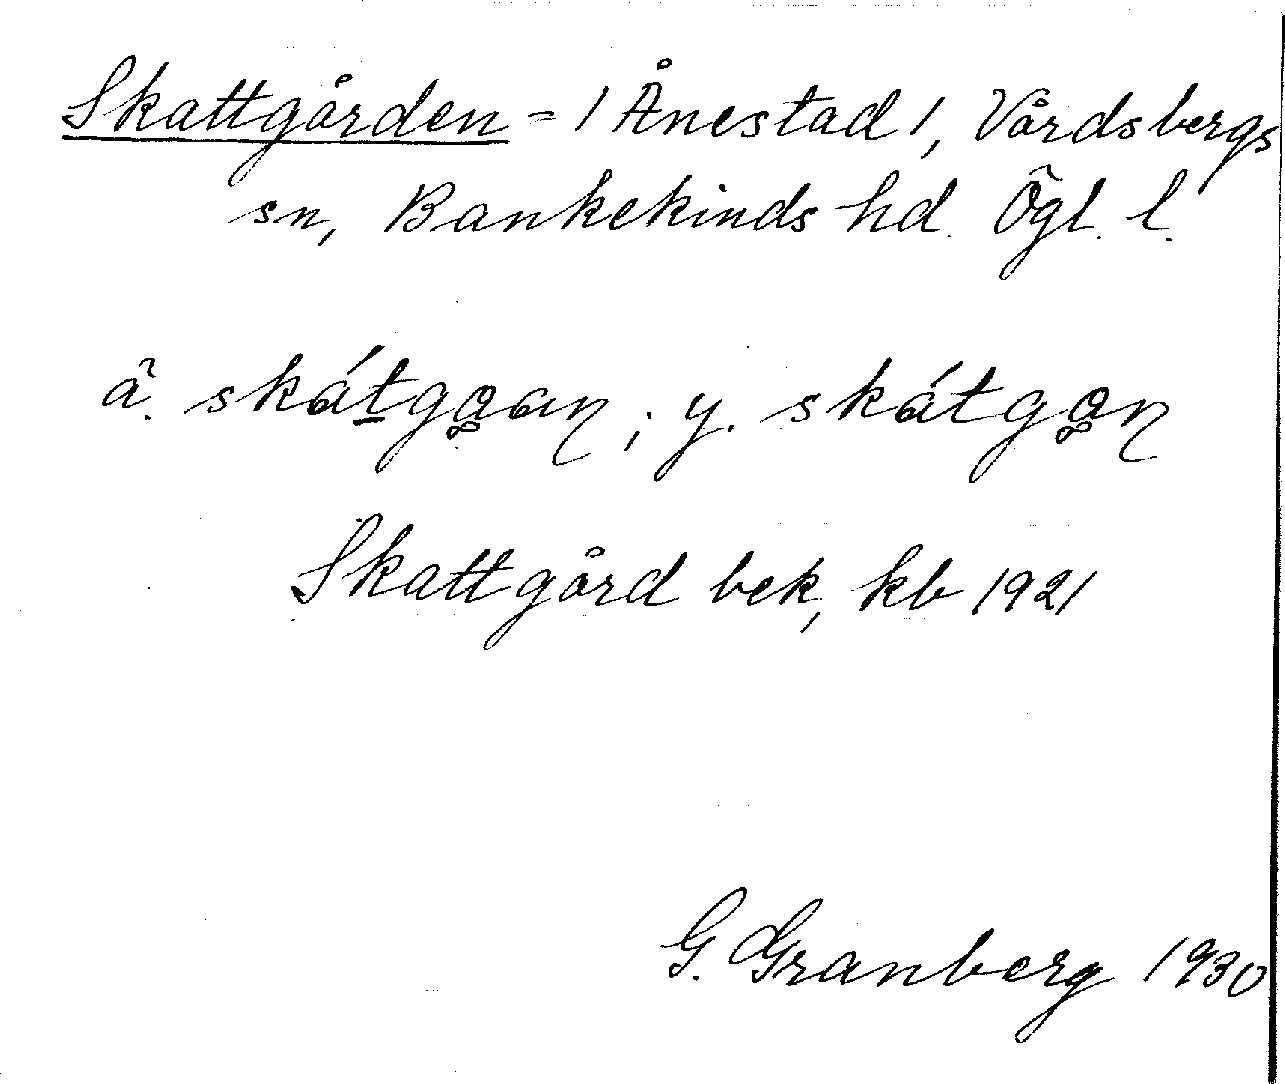 Skattgården = / Ånestad /, Vårdsbergs
sn, Bankekinds hd. Ögl. l.
ä. skátgꜵan ; y. skátgꜵn
Skattgård bek, kb 1921
G. Granberg 1930